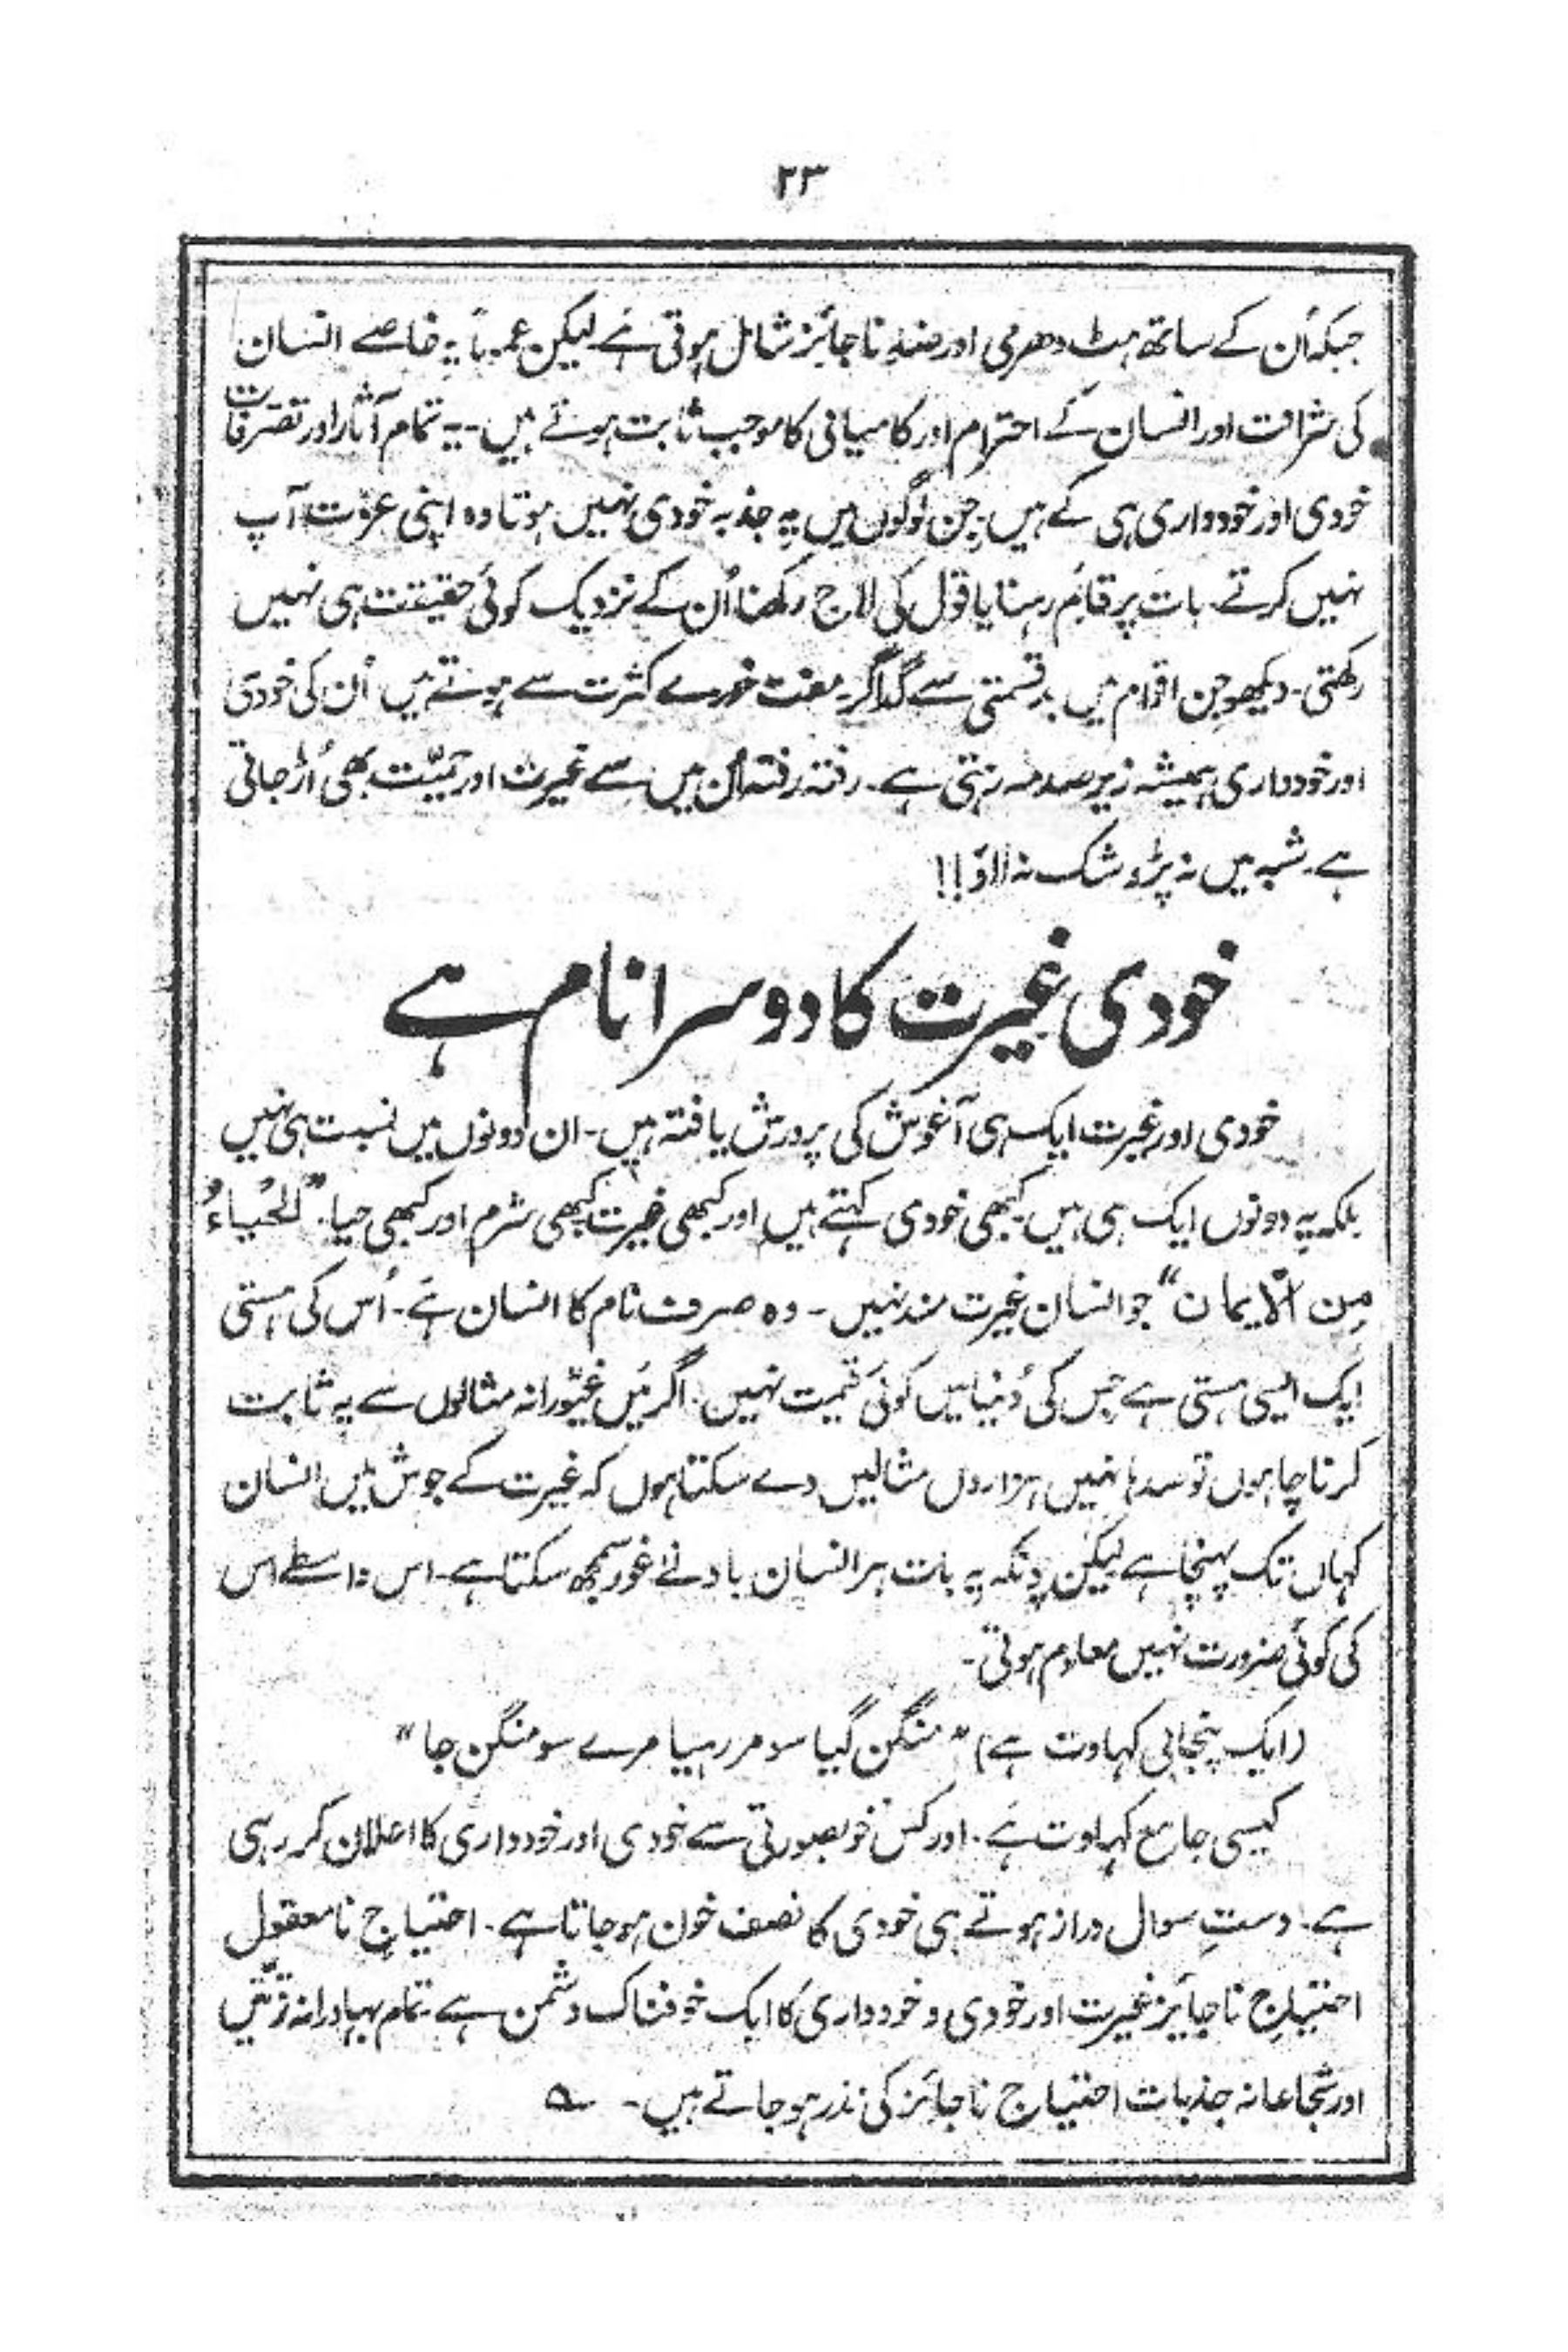 ۲۳
جبکہ اُن کے ساتھ ہٹ دھرمی اور ضدِ ناجائز شامل ہوتی ہے لیکن عموماً یہ خاصے انسان
کی شرافت اور انسان کے احترام اور کامیابی کا موجب ثابت ہوتے ہیں۔ یہ تمام آثار اور تصرفات
خودی اور خودداری ہی کے ہیں۔ جن لوگوں میں یہ جذبہ خودی نہیں ہوتا وہ اپنی عزت آپ
نہیں کرتے۔ بات پر قائم رہنا یا قول کی لاج رکھنا اُن کے نزدیک کوئی حقیقت ہی نہیں
رکھتی۔ دیکھو جن اقوام میں بدقسمتی سے گداگر۔ مفت خورے کثرت سے ہوتے ہیں اُن کی خودی
اور خودداری ہمیشہ زیر صدمہ رہتی ہے۔ رفتہ رفتہ اُن میں سے غیرت اور حمیّت بھی اُڑ جاتی
ہے۔ شبہ میں نہ پڑو شک نہ لاؤ!!
خودی غیرت کا دوسرا نام ہے
خودی اور غیرت ایک ہی آغوش کی پرورش یافتہ ہیں۔ ان دونوں میں نسبت ہی نہیں
بلکہ یہ دونوں ایک ہی ہیں۔ کبھی خودی کہتے ہیں اور کبھی غیرت کبھی شرم اور کبھی حیا۔ "اَلْحَیَاءُ
مِنَ الْاِیمان" جو انسان غیرت مند نہیں۔ وہ صرف نام کا انسان ہے۔ اُس کی ہستی
ایک ایسی ہستی ہے جس کی دُنیا میں کوئی قیمت نہیں۔ اگر میں غیّورانہ مثالوں سے یہ ثابت
کرنا چاہوں تو صدہا نہیں ہزاروں مثالیں دے سکتا ہوں کہ غیرت کے جوش میں انسان
کہاں تک پہنچا ہے لیکن چونکہ یہ بات ہر انسان بادنےٰ غور سمجھ سکتا ہے۔ اس واسطے اس
کی کوئی ضرورت نہیں معلوم ہوتی۔
(ایک پنجابی کہاوت ہے) "منگن گیا سو مر رہیا مرے سو منگن جا"
کیسی جامع کہاوت ہے۔ اور کس خوبصورتی سے خودی اور خودداری کا اعلان کر رہی
ہے۔ دستِ سوال دراز ہوتے ہی خودی کا نصف خون ہو جاتا ہے۔ احتیاج نامعقول
احتیاج ناجائیز غیرت اور خودی و خودداری کا ایک خوفناک دشمن ہے۔ تمام بہادرانہ قوتیں
اور شجاعانہ جذبات احتیاج ناجائز کی نذر ہو جاتے ہیں۔ ؎